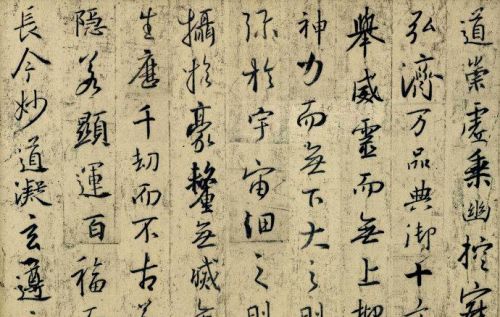 道崇虛乘幽控寂
弘濟万品典御十
舉威靈而無上
神力而無下大之則
弥於宇宙細之則
攝於豪釐無滅無
生歷千劫而不古
隱若顯運百福
長今妙道凝玄遵